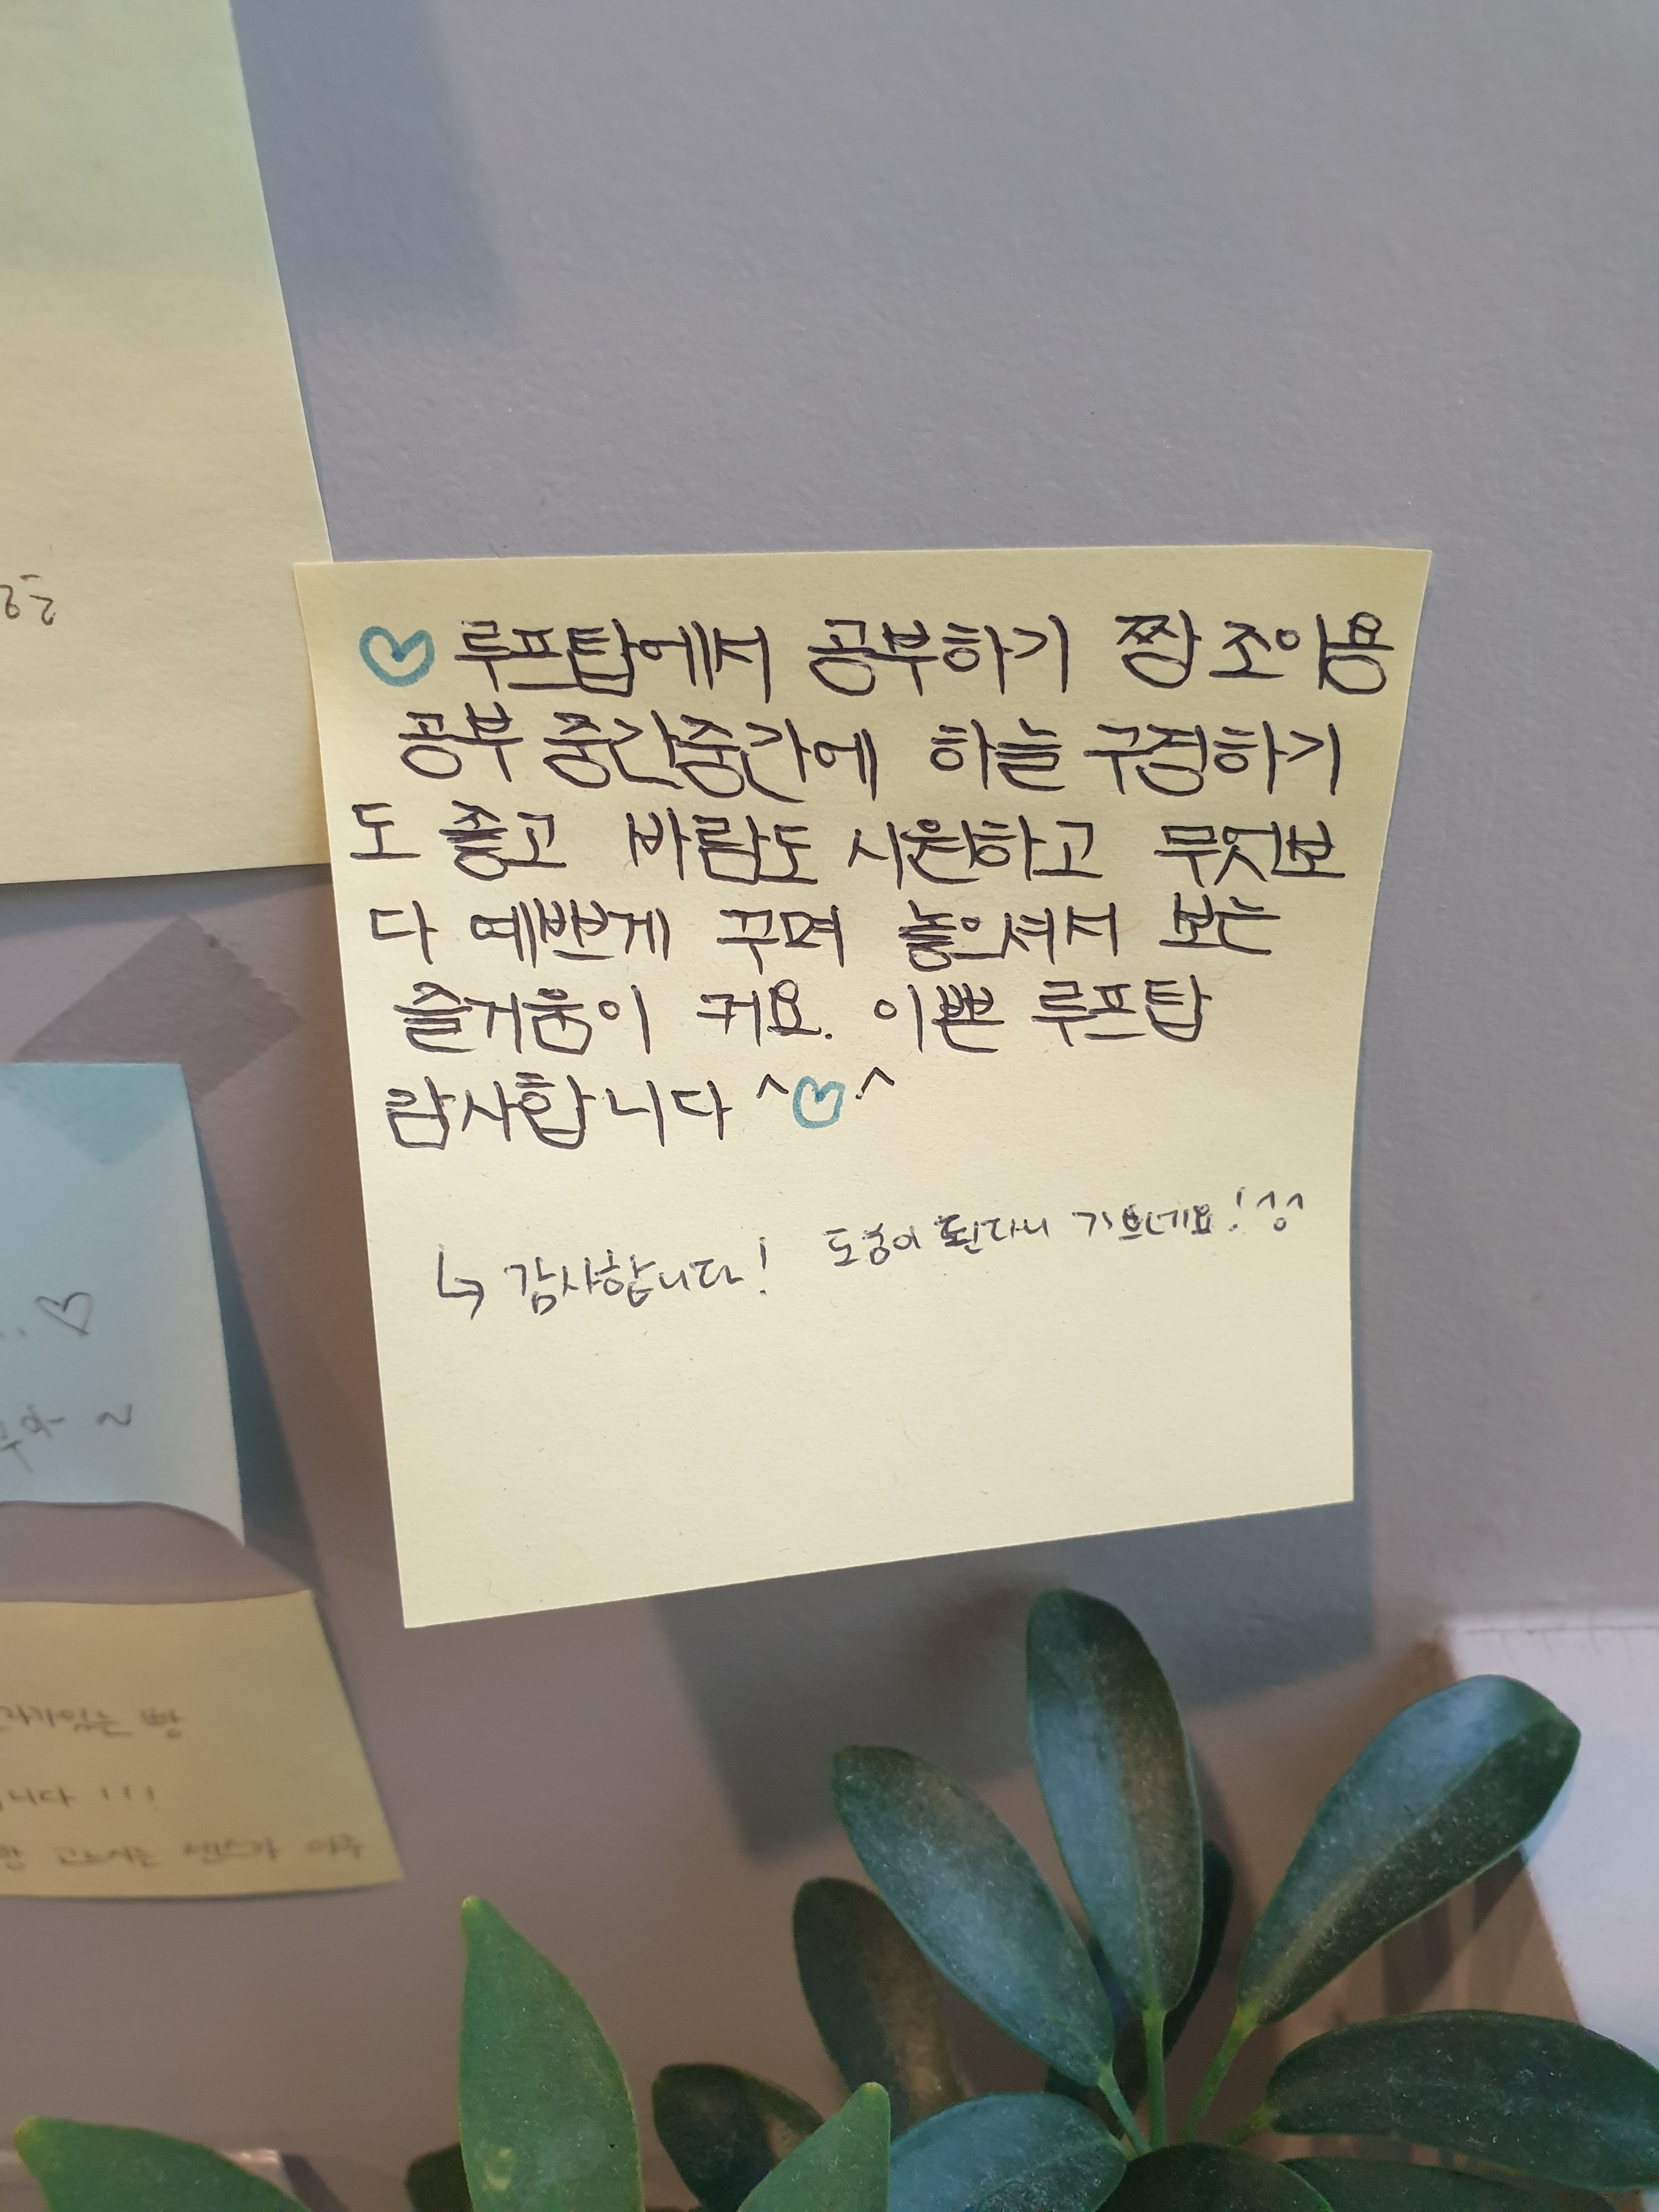 ♡ 루프탑에서 공부하기 짱 조아용
공부 중간중간에 하늘 구경하기
도 좋고 바람도 시원하고 무엇보
다 예쁘게 꾸며 놓으셔서 보는
즐거움이 커요. 이쁜 루프탑
감사합니다 ^♡^
↳ 감사합니다! 도움이 된다니 기쁘네요! ^^
.. ♡
~
있는 빵
니다 !!!
센스가 아주